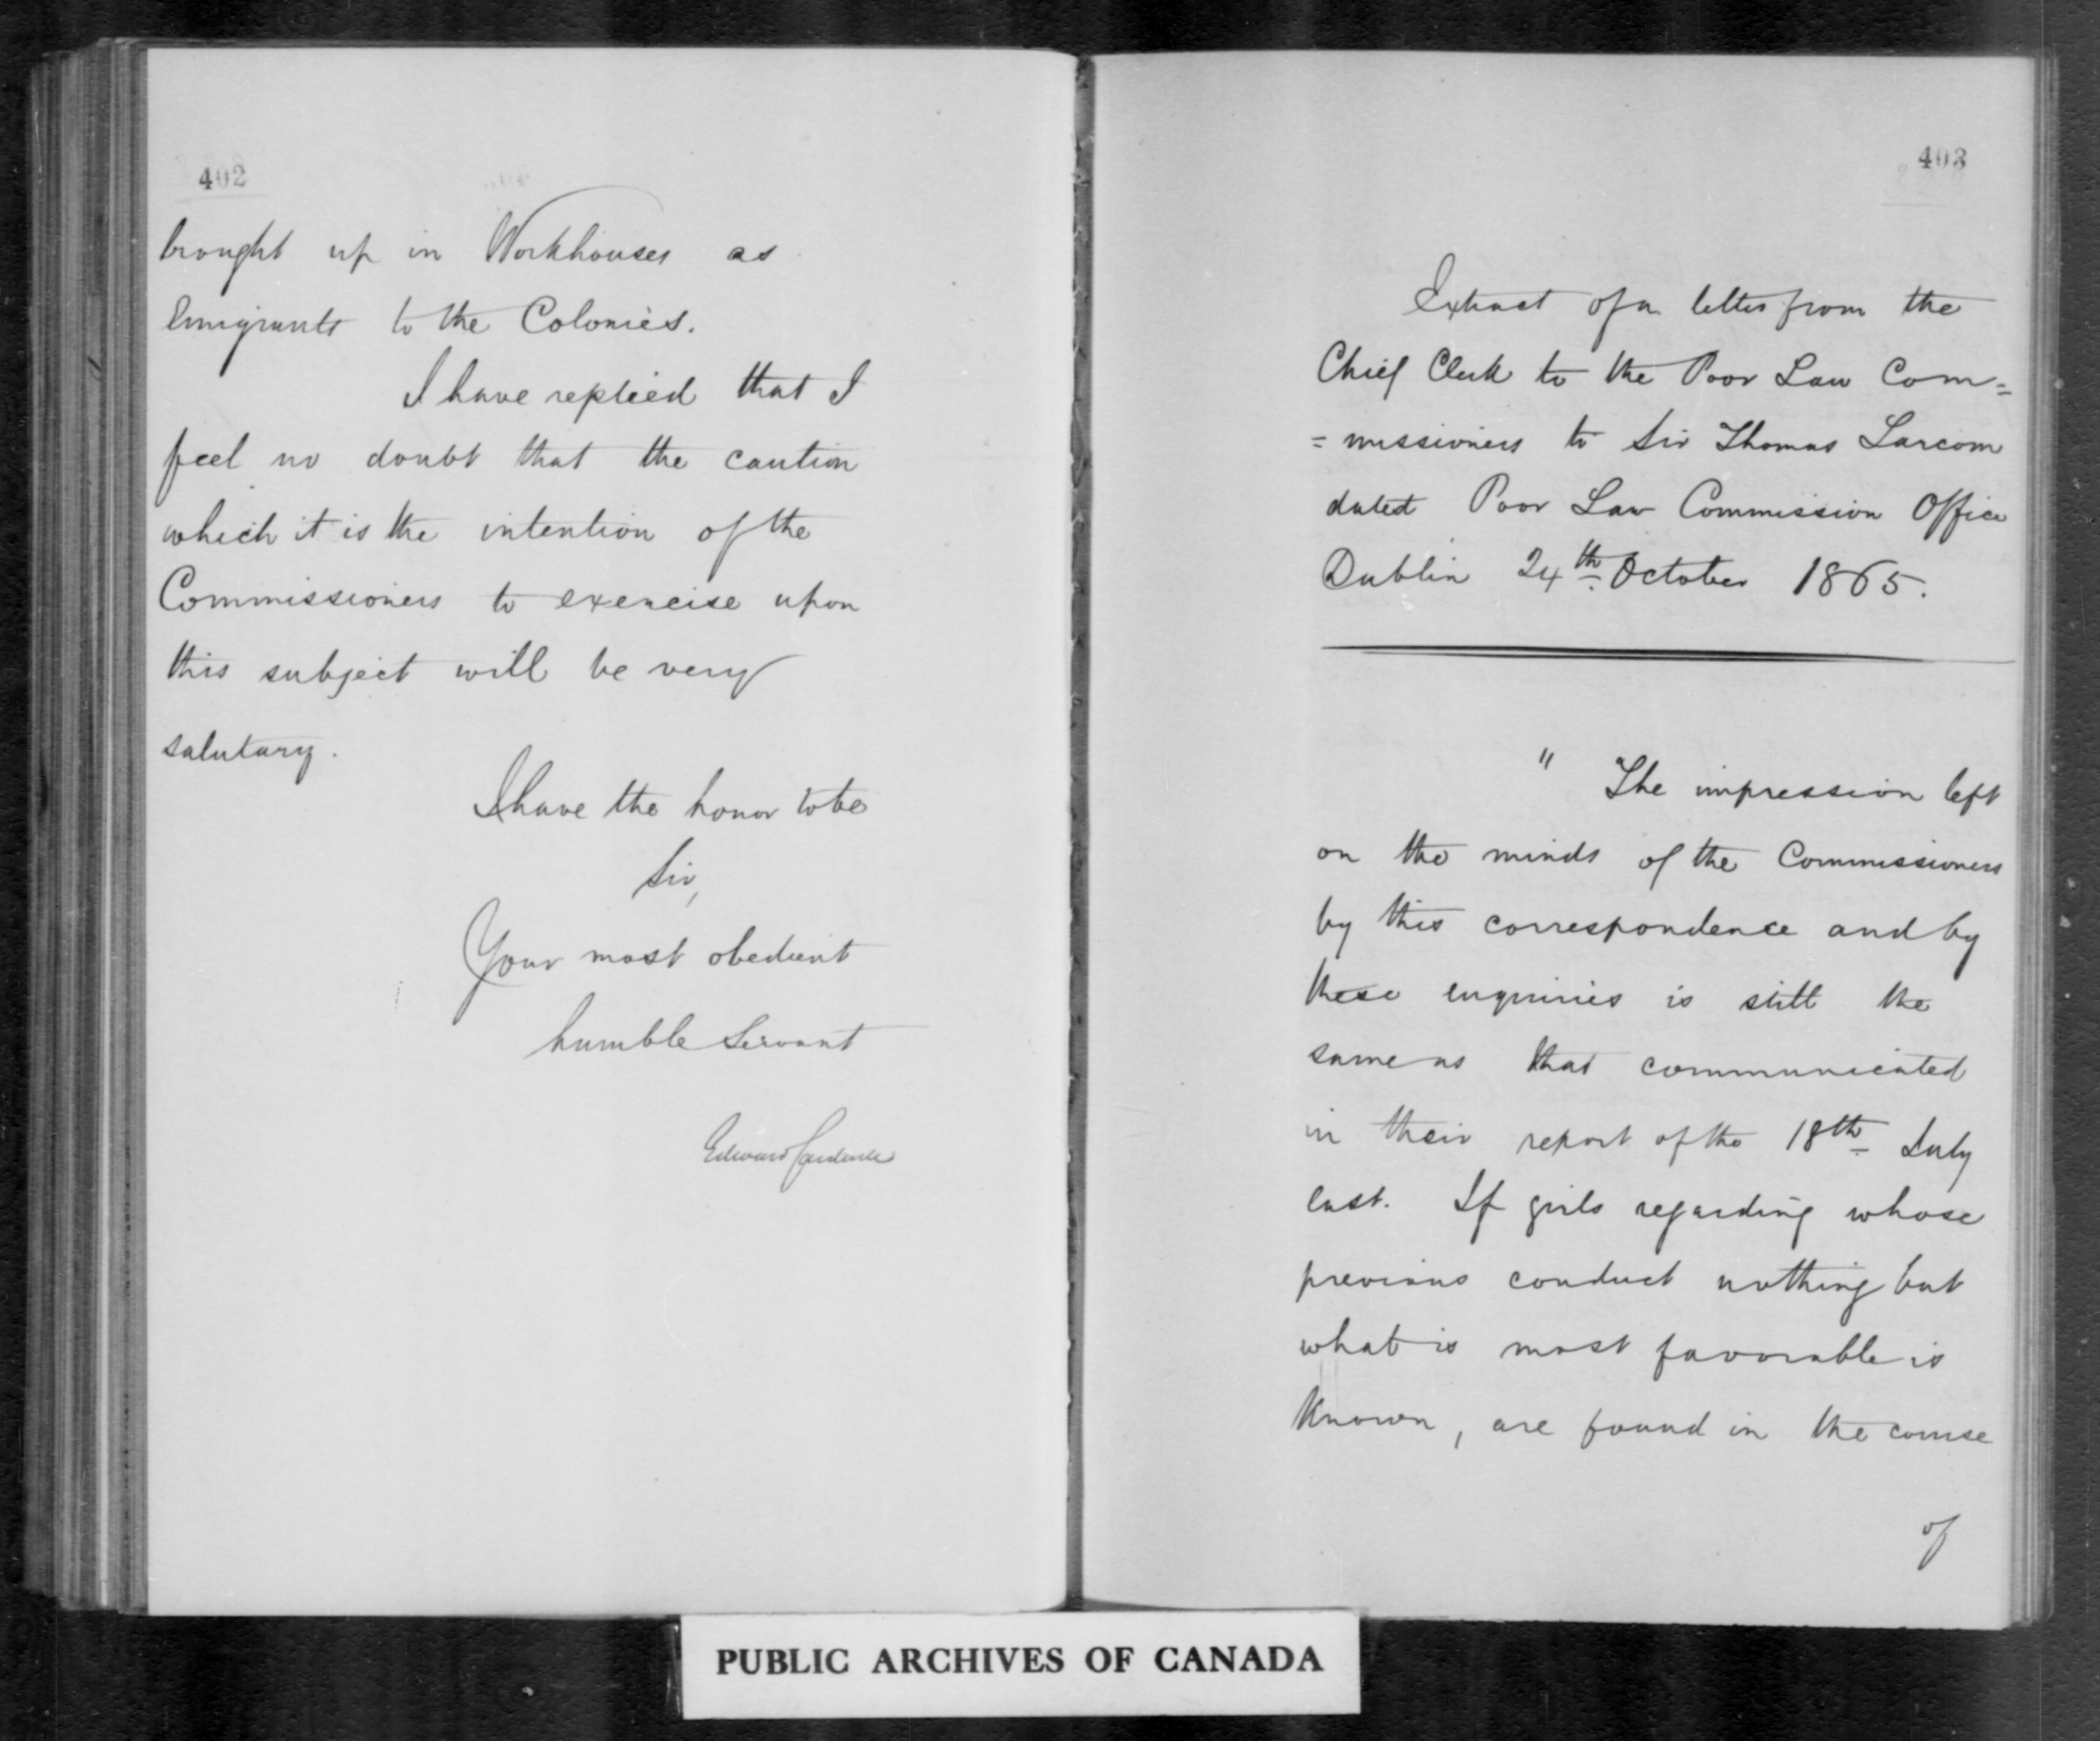 402
brought up in Workhouses as
Emigrants to the Colonies.
I have replied that I
feel no doubt that the caution
which it is the intention of the
Commissioners to exercise upon
this subject will be very
salutary.
I have the honor to be
Sir,
Your most obedient
humble Servant
Edward Cardwell
403
Extract of a letter from the
Chief Clerk to the Poor Law Com=
=missioners to Sir Thomas Larcom
dated Poor Law Commission Office
Dublin 24th October 1865.
" The impression left
on the minds of the Commissioners
by this correspondence and by
these enquiries is still the
same as that communicated
in their report of the 18th July
last. If girls regarding whose
previous conduct nothing but
what is most favorable is
known, are found in the course
of
PUBLIC ARCHIVES OF CANADA